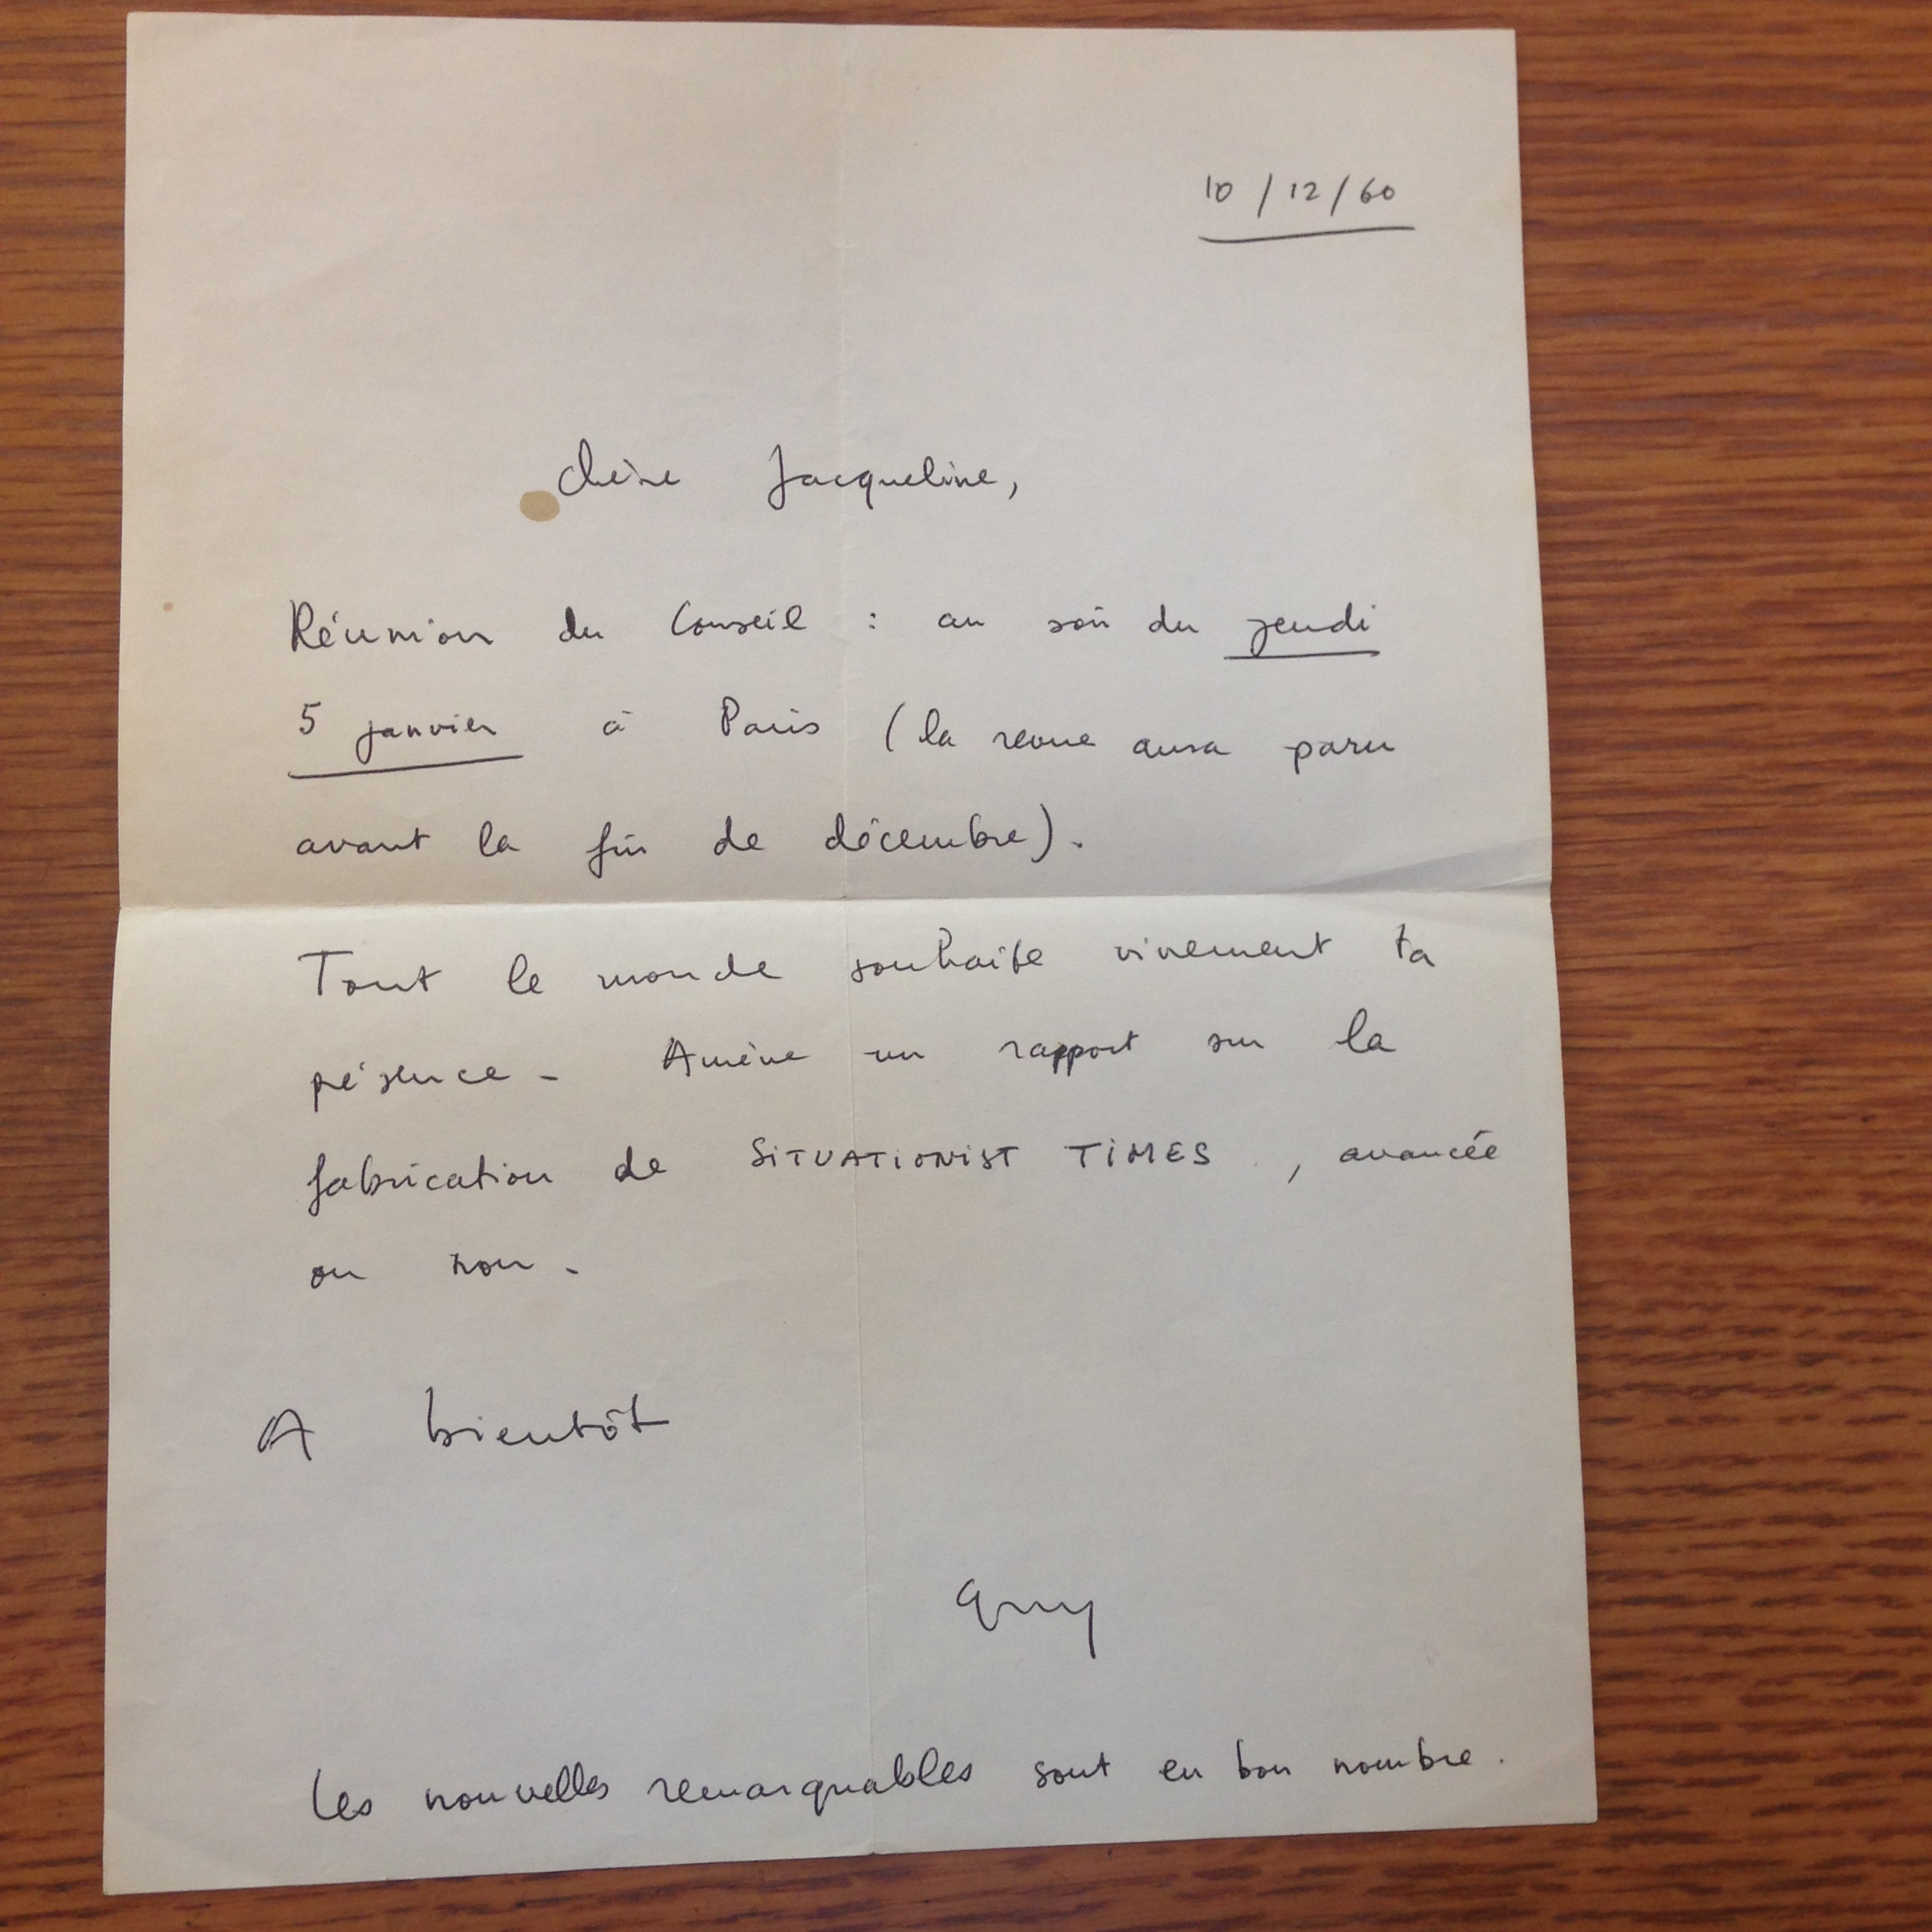 10/12/60
Chère Jacqueline,
Réunion du Conseil : au soir du jeudi
5 janvier à Paris (la revue aura paru
avant la fin de décembre).
Tout le monde souhaite vivement ta
présence - Amène un rapport sur la
fabrication de SITUATIONIST TIMES, avancée
ou non -
A bientôt
Guy
Les nouvelles remarquables sont en bon nombre.